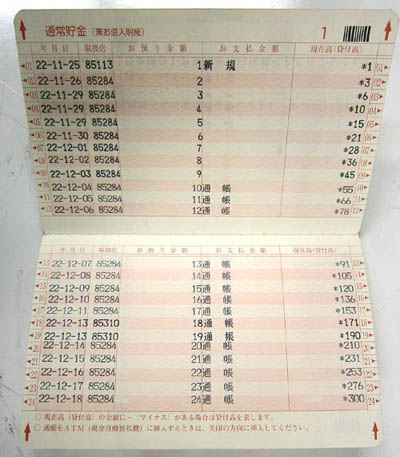 通常貯金（兼お借入明細） 1
年月日 取扱店 お預り金額 お支払金額 現在高(貸付高)
01 22-11-25 85113 1新 規 *1 01
02 22-11-26 85284 2 *3 02
03 22-11-29 85284 3 *6 03
04 22-11-29 85284 4 *10 04
05 22-11-29 85284 5 *15 05
06 22-11-30 85284 6 *21 06
07 22-12-01 85284 7 *28 07
08 22-12-02 85284 8 *36 08
09 22-12-03 85284 9 *45 09
10 22-12-04 85284 10通 帳 *55 10
11 22-12-05 85284 11通 帳 *66 11
12 22-12-06 85284 12通 帳 *78 12
年月日 取扱店 お預り金額 お支払金額 現在高(貸付高)
13 22-12-07 85284 13通 帳 *91 13
14 22-12-08 85284 14通 帳 *105 14
15 22-12-09 85284 15通 帳 *120 15
16 22-12-10 85284 16通 帳 *136 16
17 22-12-11 85284 17通 帳 *153 17
18 22-12-13 85310 18通 帳 *171 18
19 22-12-13 85310 19通 帳 *190 19
20 22-12-14 85284 20通 帳 *210 20
21 22-12-15 85284 21通 帳 *231 21
22 22-12-16 85284 22通 帳 *253 22
23 22-12-17 85284 23通 帳 *276 23
24 22-12-18 85284 24通 帳 *300 24
○ 現在高（貸付高）の金額に－（マイナス）がある場合は貸付高を表します。
○ 通帳をATM（現金自動預払機）に挿入するときは、矢印の方向に挿入してください。